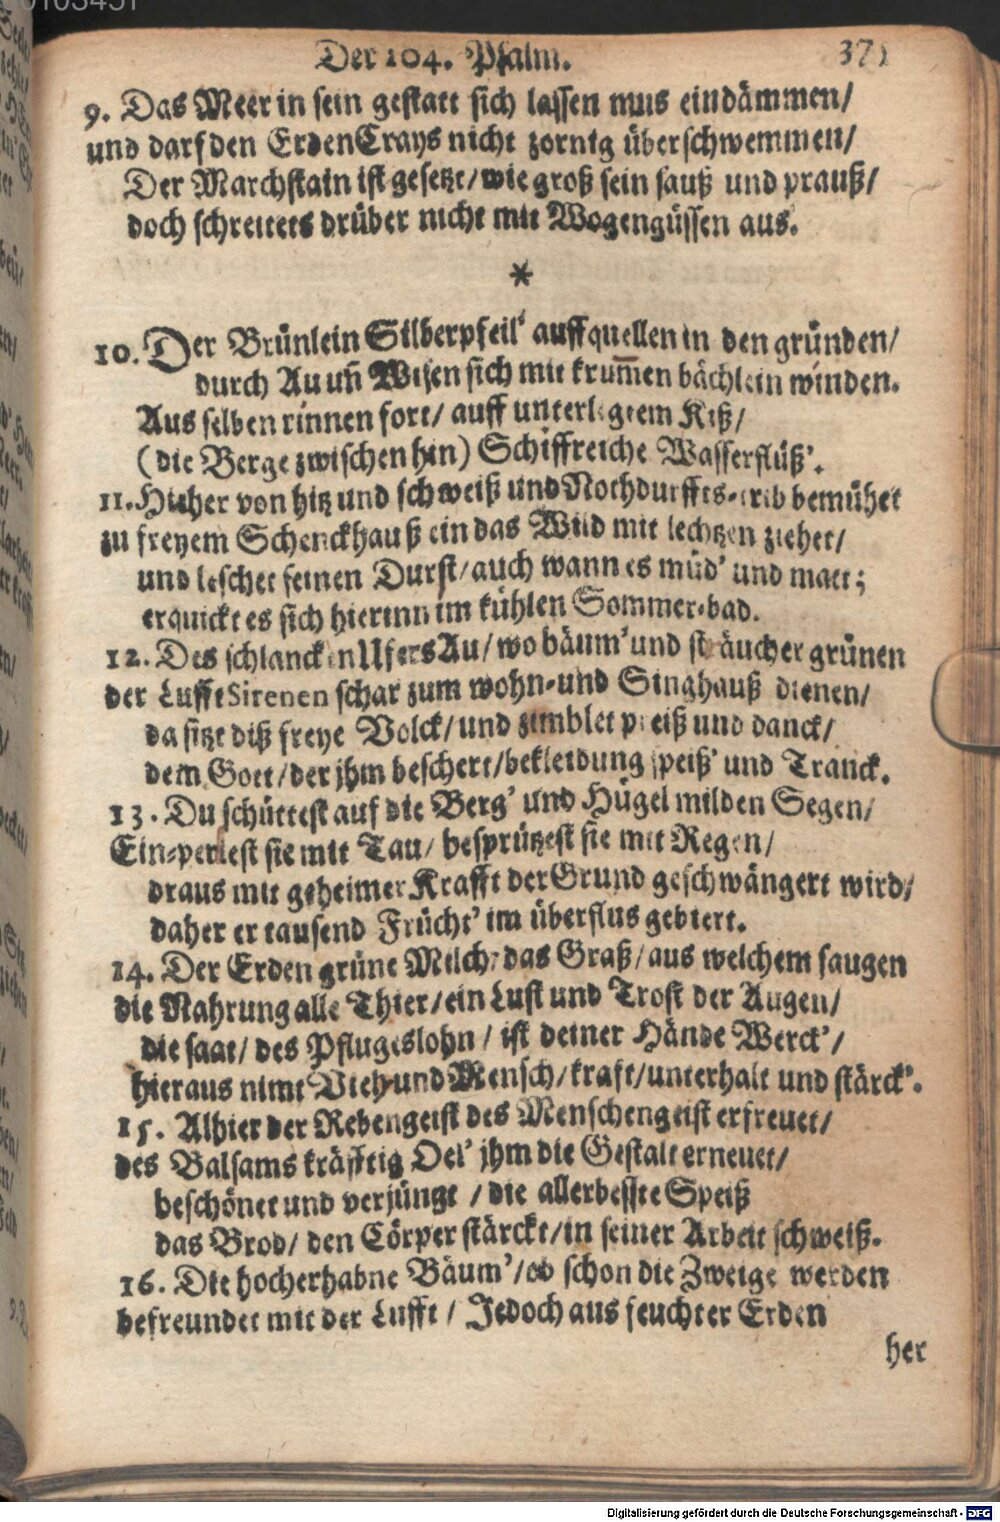 Der 104. Psalm. 371
9. Das Meer in sein gestatt sich lassen mus eindämmen/
und darf den ErdenCrays nicht zornig überschwemmen/
Der Marchstain ist gesetzt/ wie groß sein sauß und prauß/
doch schreitets drüber nicht mit Wogengüssen aus.
*
10. Der Brünlein Silberpfeil' auffquellen in den gründen/
durch Au uñ Wisen sich mit krum̄en bächlein winden.
Aus selben rinnen fort/ auff unterlegtem Kiß/
(die Berge zwischen hin) Schiffreiche Wasserflüß'.
11. Hieher von hitz und schweiß und Nochdurffts-trib bemühet
zu freyem Schenckhauß ein das Wild mit lechtzen ziehet/
und leschet seinen Durst/ auch wann es müd' und matt;
erquickt es sich hierinn im kühlen Sommer-bad.
12. Des schlancken Ufers Au/ wo bäum' und sträucher grünen
der Lufft Sirenen schar zum wohn- und Singhauß dienen/
da sitzt diß freye Volck/ und zimblet preiß und danck/
dem Gott/ der jhm beschert/ bekleidung speiß' und Tranck.
13. Du schüttest auf die Berg' und Hügel milden Segen/
Ein-perlest sie mit Tau/ besprützest sie mit Regen/
draus mit geheimer Krafft der Grund geschwängert wird/
daher er tausend Frücht' im überflus gebiert.
14. Der Erden grüne Milch/ das Graß/ aus welchem saugen
die Nahrung alle Thier/ ein Lust und Trost der Augen/
die saat/ des Pflugeslohn/ ist deiner Hände Werck'/
hieraus nimt Vieh und Mensch/ kraft/ unterhalt und stärck'.
15. Alhier der Rebengeist des Menschengeist erfreuet/
des Balsams kräfftig Oel' jhm die Gestalt erneuet/
beschönet und verjüngt / die allerbesste Speiß
das Brod/ den Cörper stärckt/ in seiner Arbeit schweiß.
16. Die hocherhabne Bäum'/ ob schon die Zweige werden
befreundet mit der Lufft / Jedoch aus feuchter Erden
her
Digitalisierung gefördert durch die Deutsche Forschungsgemeinschaft - DFG